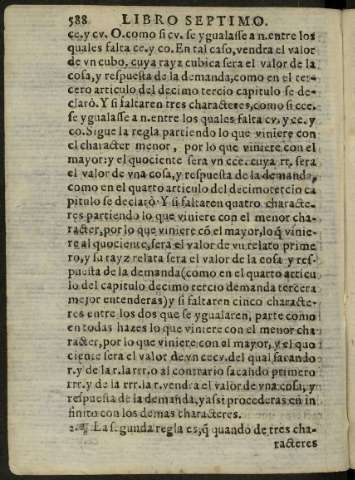 588 LIBRO SEPTIMO.
ce.y cv. O.como si cv. se ygualasse a n.entre los
quales falta ce.y co. En tal caso, vendra el valor
de vn cubo, cuya rayz cubica sera el valor de la
cosa, y respuesta de la demanda, como en el ter-
cero articulo del decimo tercio capitulo se de-
claró. Y si faltaren tres characteres, como si cce.
se ygualasse a n.entre los quales falta cv. y ce. y
co. Sigue la regla partiendo lo que viniere con
el character menor, por lo que viniere con el
mayor: y el quociente sera vn cce. cuya rr. sera
el valor de vna cosa, y respuesta de la demanda,
como en el quarto articulo del decimotercio ca
pitulo se declarò. Y si faltaren quatro characte-
res partiendo lo que viniere con el menor cha-
racter, por lo que viniere cõ el mayor, lo q̃ vinie-
re al quociente, sera el valor de vn relato prime
ro, y su rayz relata sera el valor de la cosa y res-
puesta de la demanda (como en el quarto articu
lo del capitulo decimo tercio demanda tercera
mejor entenderas) y si faltaren cinco characte-
res entre los dos que se ygualaren, parte como
en todas hazes lo que viniere con el menor cha-
racter, por lo que viniere con el mayor, y el quo
ciente sera el valor de vn cecv. del qual sacando
r.y de la r.la rrr. o al contrario sacando primero
rrr. y de la rrr. la r. vendra el valor de vna cosa, y
respuesta de la demanda, y assi procederas en in
finito con los demas characteres.
2. ¶ La segunda regla es, q̃ quando de tres cha-
racteres